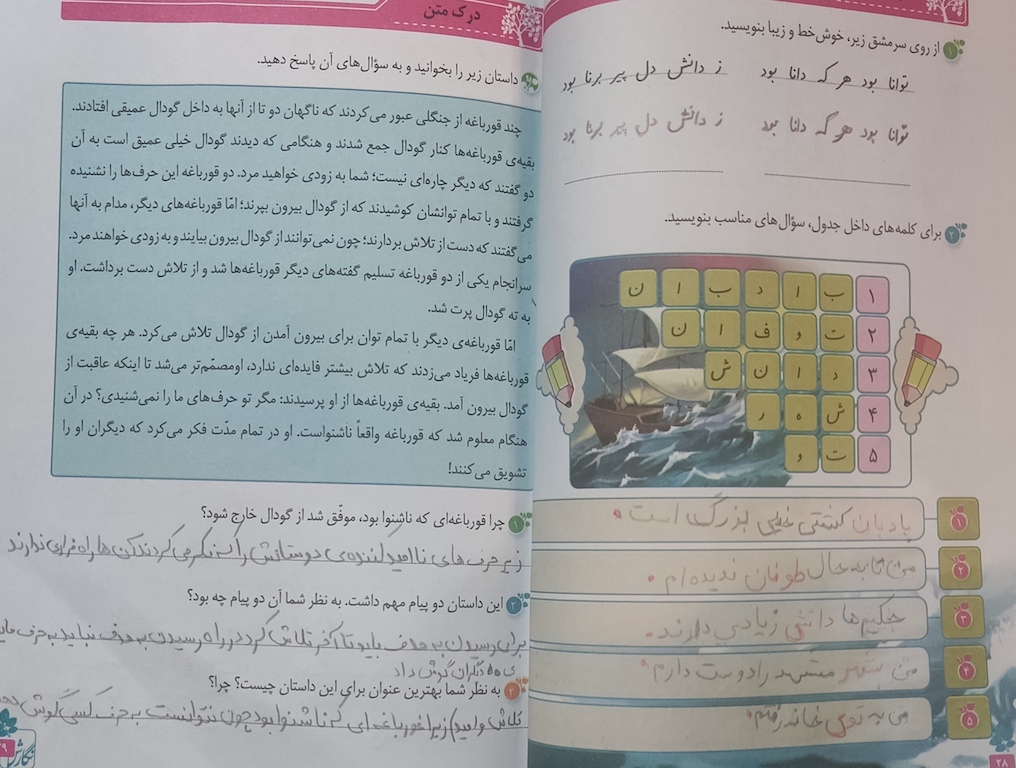 از روی سرمشق زیر، خوش‌خط و زیبا بنویسید.
توانا بود هر که دانا بود ز دانش دل پیر برنا بود
توانا بود هر که دانا بود ز دانش دل پیر برنا بود
۲ برای کلمه‌های داخل جدول، سؤال‌های مناسب بنویسید.
۱ ب ا د ب ا ن
۲ ت و ف ا ن
۳ د ا ن ش
۴ ش ه ر
۵ ت و
۱ بادبان کشتی خیلی بزرگ است.
۲ من تا به حال طوفان ندیده‌ام.
۳ حکیم‌ها دانش زیادی دارند.
۴ من شهر مشهد را دوست دارم.
۵ من به توی خانه رفتم.
۲۸
درک متن
داستان زیر را بخوانید و به سؤال‌های آن پاسخ دهید.
چند قورباغه از جنگلی عبور می‌کردند که ناگهان دو تا از آنها به داخل گودال عمیقی افتادند.
بقیه‌ی قورباغه‌ها کنار گودال جمع شدند و هنگامی که دیدند گودال خیلی عمیق است به آن
دو گفتند که دیگر چاره‌ای نیست؛ شما به زودی خواهید مرد. دو قورباغه این حرف‌ها را نشنیده
گرفتند و با تمام توانشان کوشیدند که از گودال بیرون بپرند؛ امّا قورباغه‌های دیگر، مدام به آنها
می‌گفتند که دست از تلاش بردارند؛ چون نمی‌توانند از گودال بیرون بیایند و به زودی خواهند مرد.
سرانجام یکی از دو قورباغه تسلیم گفته‌های دیگر قورباغه‌ها شد و از تلاش دست برداشت. او
به ته گودال پرت شد.
امّا قورباغه‌ی دیگر با تمام توان برای بیرون آمدن از گودال تلاش می‌کرد. هر چه بقیه‌ی
قورباغه‌ها فریاد می‌زدند که تلاش بیشتر فایده‌ای ندارد، او مصمّم‌تر می‌شد تا اینکه عاقبت از
گودال بیرون آمد. بقیه‌ی قورباغه‌ها از او پرسیدند: مگر تو حرف‌های ما را نمی‌شنیدی؟ در آن
هنگام معلوم شد که قورباغه واقعاً ناشنواست. او در تمام مدّت فکر می‌کرد که دیگران او را
تشویق می‌کنند!
۱ چرا قورباغه‌ای که ناشنوا بود، موفّق شد از گودال خارج شود؟
زیر حرف های ناامید کننده‌ی دوستانش را که فکر می کردند کن ها راه فراری ندارند
۲ این داستان دو پیام مهم داشت. به نظر شما آن دو پیام چه بود؟
برای رسیدن به هدف باید تا آخر تلاش کرد در راه رسیدن به هدف نباید به حرف
دیگران گوش داد
۳ به نظر شما بهترین عنوان برای این داستان چیست؟ چرا؟
تلاش و امید) زیرا قورباغه ای که ناشنوا بود چون نتوانست به حرف کسی گوش دهد
نگارش